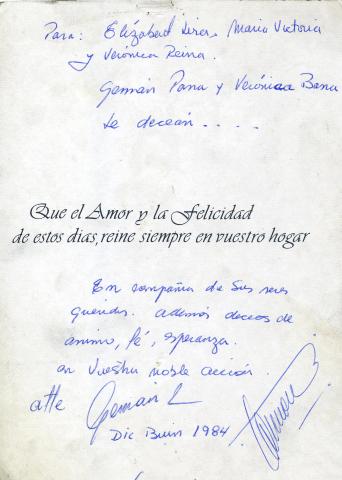 Para: Elizabed Lira, Maria Victoria
y Verónica Reina.
Germán Parra y Verónica Barra
Le decean . . . .
Que el Amor y la Felicidad
de estos dias, reine siempre en vuestro hogar
En compañia de sus seres
queridos. además deceos de
animo, fé, esperanza.
en vuestra noble acción.
atte Germán
Dic Buin 1984